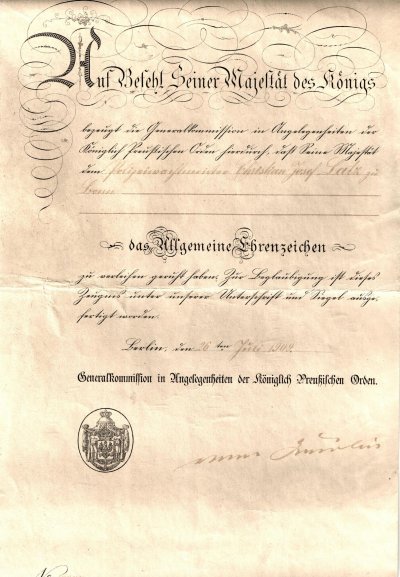 Auf Befehl Seiner Majestät des Königs
bezeugt die Generalkommission in Angelegenheiten der
Königlich Preußischen Orden hierdurch, daß Seine Majestät
dem Polizeiwachtmeister Christian Josef zu
Bonn
das Allgemeine Ehrenzeichen
zu verleihen geruht haben. Zur Beglaubigung ist dieses
Zeugnis unter unserer Unterschrift und Siegel ausge-
fertigt worden.
Berlin, den 26 ten Juli 1909.
Generalkommission in Angelegenheiten der Königlich Preußischen Orden.